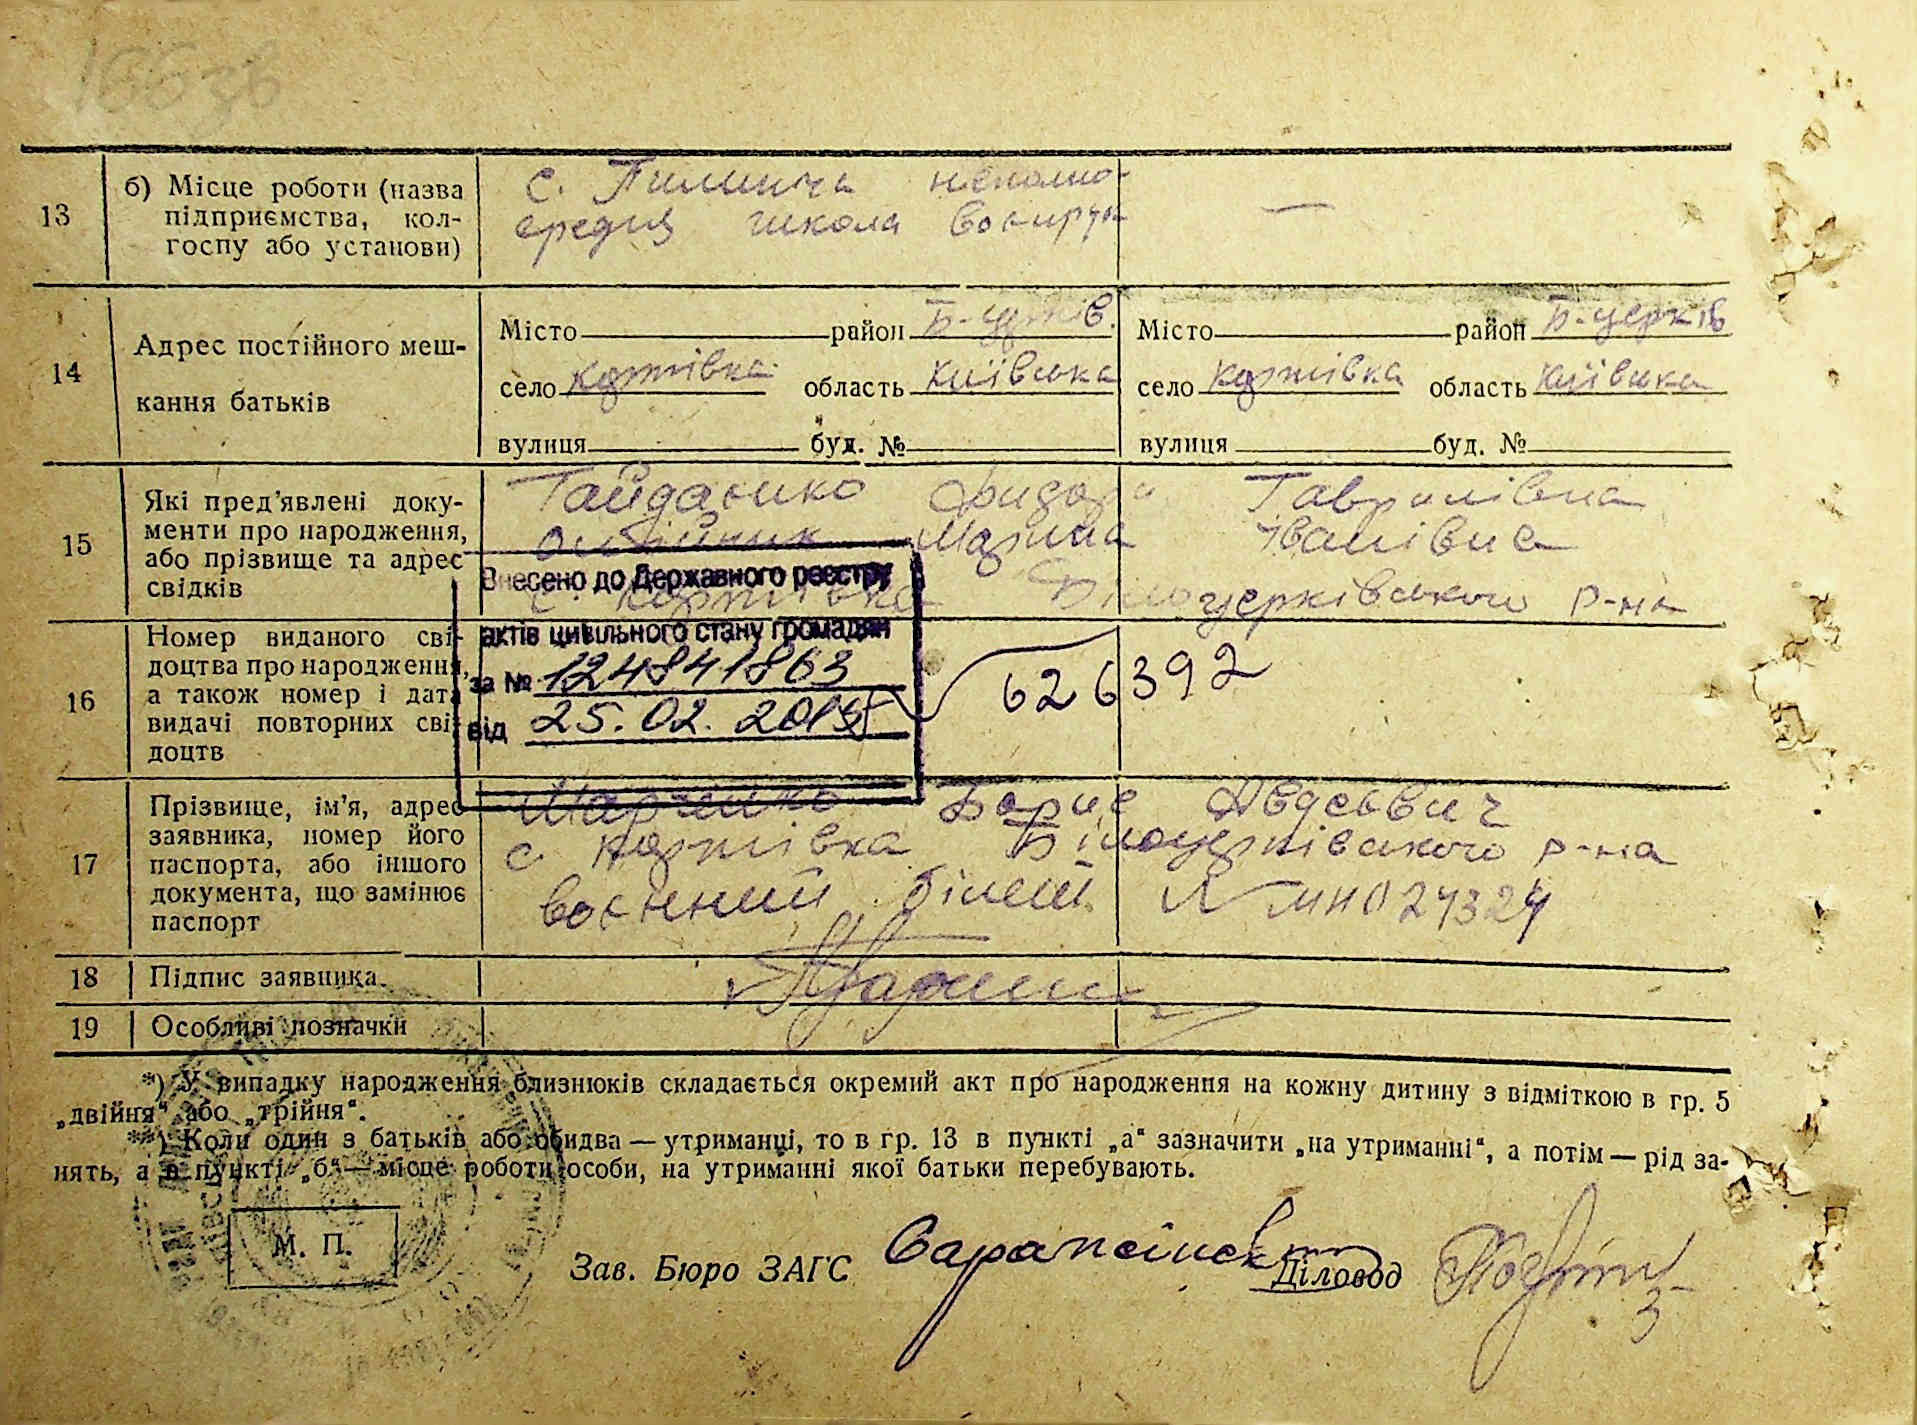 166 зв
13
б) Місце роботи (назва
підприємства, кол-
госпу або установи)
с. Пилипча неповно-
средня школа воєнрук
—
14
Адрес постійного меш-
кання батьків
Місто район Б-церків.
село Коржівка область Київська
вулиця буд. №
Місто район Б-церків
село Коржівка область Київська
вулиця буд. №
15
Які пред'явлені доку-
менти про народження,
або прізвище та адрес
свідків
Гайданико Гаврилівна
Марина Іванівна
с. Коржівка Білоцерківського р-на
16
Номер виданого сві-
доцтва про народження,
а також номер і дата
видачі повторних сві-
доцтв
Внесено до Державного реєстру
актів цивільного стану громадян
за № 124841863
від 25.02.2015
626392
17
Прізвище, ім'я, адрес
заявника, номер його
паспорта, або іншого
документа, що замінює
паспорт
Марченко Борис Авдєєвич
с. Коржівка Білоцерківського р-на
воєнний білет №
18
Підпис заявника
19
Особливі позначки
*) У випадку народження близнюків складається окремий акт про народження на кожну дитину з відміткою в гр. 5
„двійня“ або „трійня“.
**) Коли один з батьків або обидва — утриманці, то в гр. 13 в пункті „а“ зазначити „на утриманні“, а потім — рід за-
нять, а в пункті „б“ — місце роботи особи, на утриманні якої батьки перебувають.
М. П.
Зав. Бюро ЗАГС
Діловод